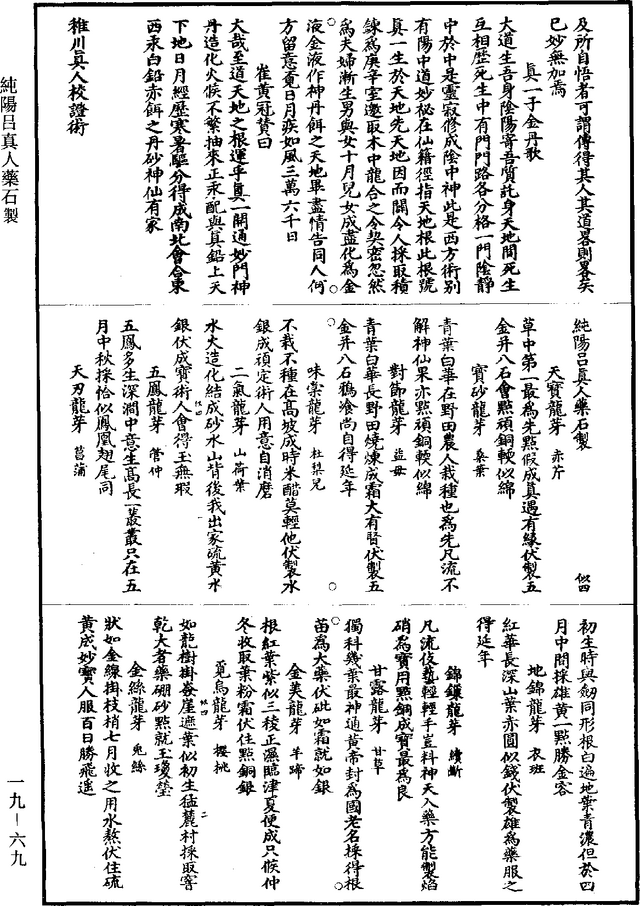 及所自悟者可謂傳得其人其道畧則畧矣
已妙無加焉
真一子金丹歌
大道生吾身陰陽寄吾質託身天地間死生
互相歷死生中有門門路各分格一門陰靜
中於中是靈寂修成陰中神此是西方術别
有陽中道妙秘在仙藉徑指天地根此根號
真一生於天地先天地因而闢令人採取積
鍊為庚辛室邀取木中龍合之令契密忽然
為夫婦漸生男與女十月兒女成盡化為金
液金液作神丹餌之天地畢盡情告同人何
方留意覔日月疾如風三萬六千日
崔黃冠贊曰
大哉至道天地之根運乎真一開通妙門神
丹造化火候不繁抽來正汞配與真鉛上天
下地日月經歷寒暑驅分得成南北會合東
西汞白鉛赤餌之丹砂神仙有家
稚川真人校證術
純陽吕真人藥石製
天寶龍芽 赤芹
草中第一最為先點假成真遇有緣伏製五
金并八石會點頑銅輭似綿
寶砂龍芽 桑葉
青葉白華在野田農人栽種也為先凡流不
解神仙果亦點頑銅輭似綿
對節龍芽 益母
青葉白華長野田燒煉成霜大有賢伏製五
金并八石鵝飡尚自得延年
味棠龍芽 杜棃兒
不栽不種在高坡成時米醋莫輕他伏製水
銀成頑定術人用意自消磨
二氣龍芽 山荷葉
水火造化結成砂水山背後我出家硫黃水
銀伏成寶術人會得玉無瑕
五鳳龍芽 管仲
五鳳多生深澗中意生高長一叢叢只在五
月中秋採恰似鳳凰翅尾同
天刃龍芽 菖蒲
初生時與劒同形根白遍地葉青濃但於四
月中間採雄黃一點勝金容
地錦龍芽 衣班
紅華長深山葉赤圓似錢伏製雄為藥服之
得延年
錦鑲龍芽 續斷
凡流伎藝輕輕手豈料神天入藥方能製焰
硝為寶用點銅成寶最為良
甘露龍芽 甘草
獨科幾葉最神通黃帝封為國老名採得根
苗為大藥伏砒如霜就如銀
金美龍芽 羊蹄
根紅葉紫似三稜正濕臨津夏便成只候仲
冬收取葉粉霜伏住點銅銀
覔烏龍芽 櫻桃
如龍樹掛崟崖遮葉似初生猛麓村採取窖
乾大者藥硼砂點就玉瓊瑩
金絲龍芽 兎絲
狀如金線掛枝梢七月收之用水熬伏住硫
黃成妙寶人服百日勝飛遥
純陽吕真人藥石製
一九-六九